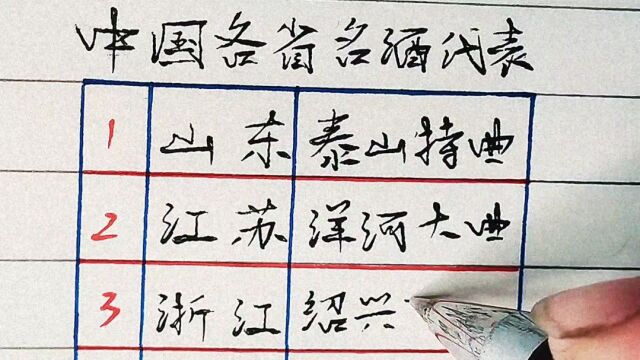 中国各省名酒代表
1 山东 泰山特曲
2 江苏 洋河大曲
3 浙江 绍兴